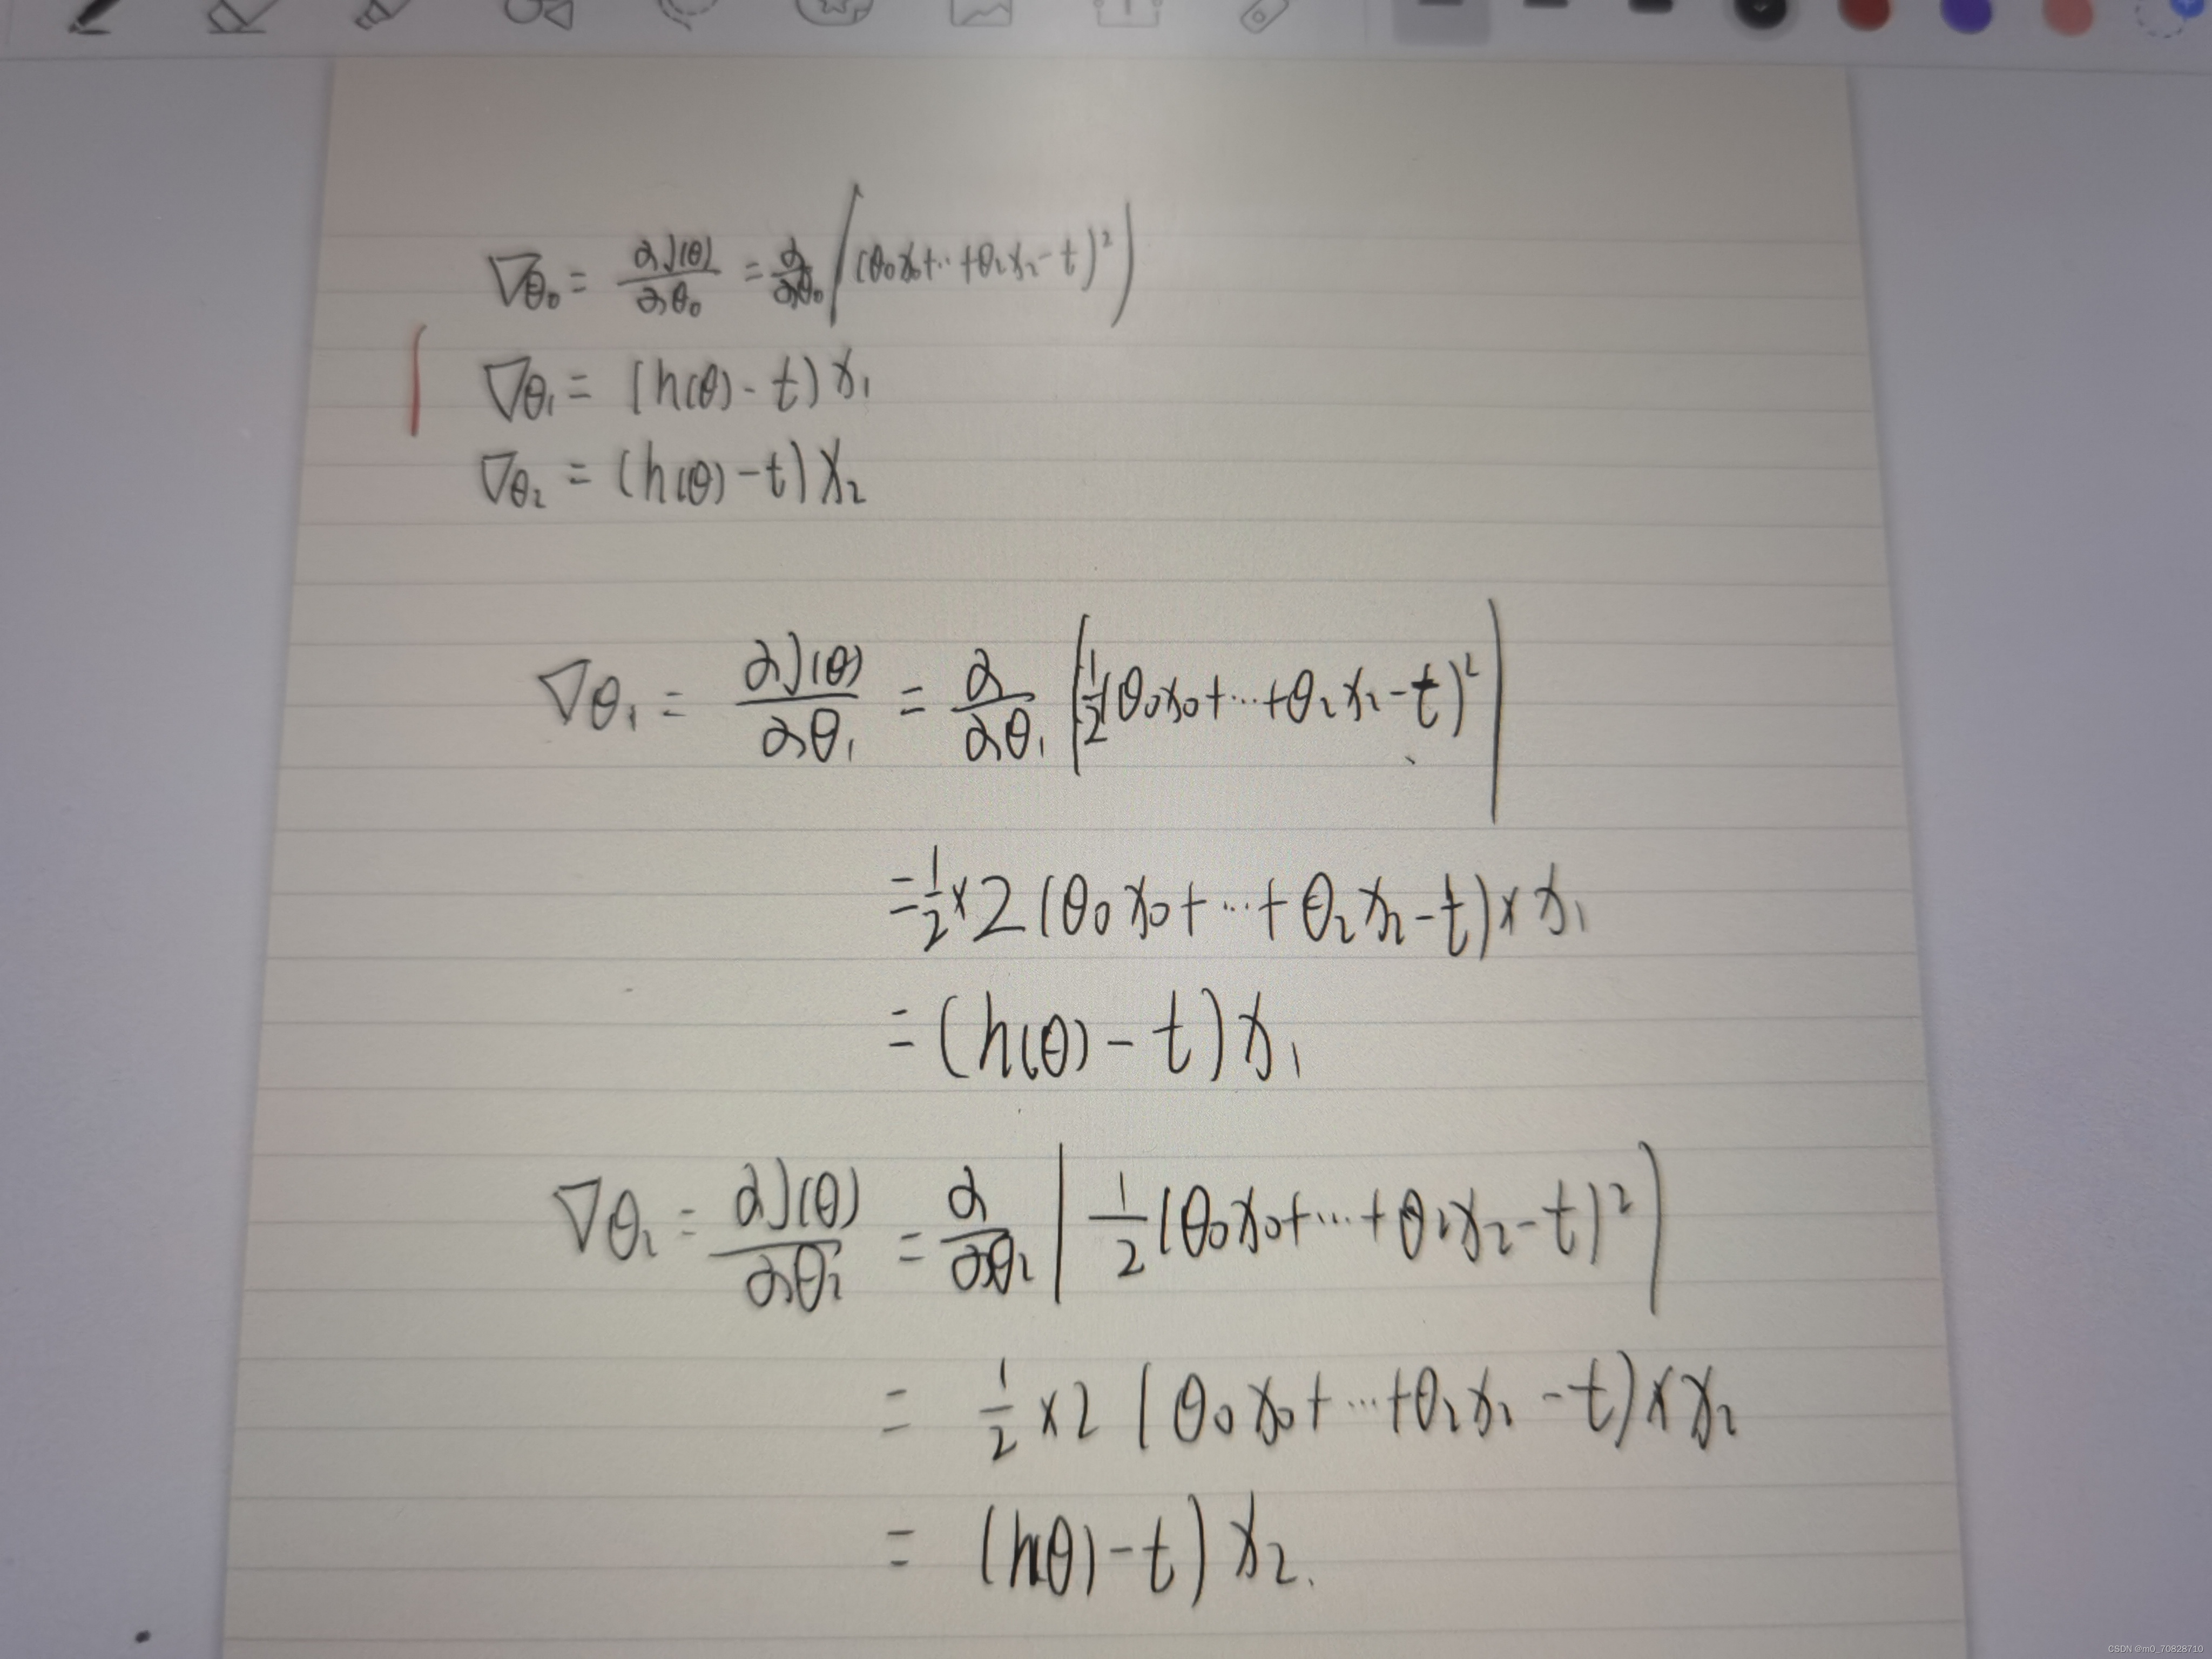 ∇θ₀ = ∂J(θ)/∂θ₀ = ∂/∂θ₀ ((θ₀x₀+…+θ₂x₂-t)²)
∇θ₁ = (h(θ)-t)x₁
∇θ₂ = (h(θ)-t)x₂
∇θ₁ = ∂J(θ)/∂θ₁ = ∂/∂θ₁ (½(θ₀x₀+…+θ₂x₂-t)²)
=½×2(θ₀x₀+…+θ₂x₂-t)×x₁
= (h(θ)-t)x₁
∇θ₂ = ∂J(θ)/∂θ₂ = ∂/∂θ₂ (½(θ₀x₀+…+θ₂x₂-t)²)
= ½×2(θ₀x₀+…+θ₂x₂-t)×x₂
= (h(θ)-t)x₂.
CSDN @m0_70828710